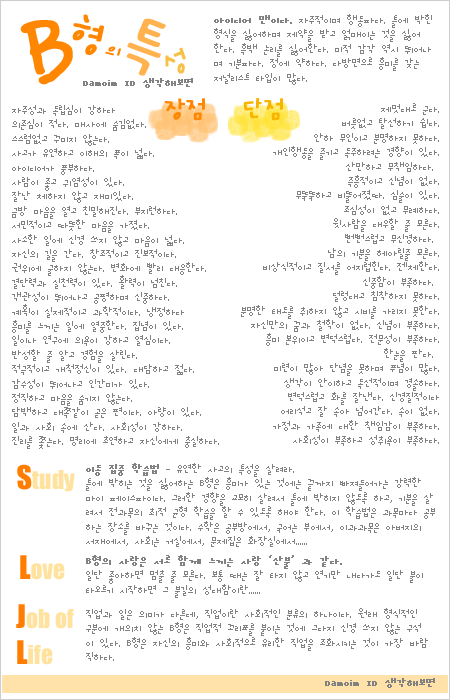 B형의 특성
Damoim ID 생각해보면
아이디어 맨이다. 자주적이며 행동파다. 틀에 박힌
형식을 싫어하며 제약을 받고 얽매이는 것을 싫어
한다. 흑백 논리를 싫어한다. 미적 감각 역시 뛰어나
며 기분파다. 정에 약하다. 다방면으로 흥미를 갖는
저널리스트 타입이 많다.
장점
단점
자주성과 독립심이 강하다
의존심이 적다. 매사에 숨김없다.
스스럼없고 꾸미지 않는다.
사고가 유연하고 이해의 폭이 넓다.
아이디어가 풍부하다.
사람이 좋고 귀염성이 있다.
잘난 체하지 않고 재미있다.
금방 마음을 열고 친밀해진다. 부지런하다.
서민적이고 따뜻한 마음을 가졌다.
사소한 일에 신경 쓰지 않고 마음이 넓다.
자신의 길을 간다. 창조적이고 진보적이다.
권위에 굴하지 않는다. 변화에 빨리 대응한다.
결단력과 실천력이 있다. 활력이 넘친다.
객관성이 뛰어나고 공평하며 신중하다.
계획이 실제적이고 과학적이다. 냉정하다
흥미를 느끼는 일에 열중한다. 집념이 있다.
일이나 연구에 의욕이 강하고 열심이다.
반성할 줄 알고 경험을 살린다.
적극적이고 개척정신이 있다. 대담하고 젊다.
감수성이 뛰어나고 인간미가 있다.
정직하고 마음을 숨기지 않는다.
담백하고 대쪽같이 곧은 편이다. 아량이 있다.
일과 사회 속에 산다. 사회성이 강하다.
진리를 쫓는다. 명리에 초연하고 자신에게 충실하다.
제멋대로 군다.
버릇없고 탈선하기 쉽다.
안하 무인이고 분명하지 못하다.
개인행동을 즐기고 독주하려는 경향이 있다.
산만하고 무책임하다.
즉흥적이고 신념이 없다.
무뚝뚝하고 비뚤어졌다. 심술이 있다.
조심성이 없고 무례하다.
윗사람을 대우할 줄 모른다.
뻔뻔스럽고 무신경하다.
남의 기분을 헤아릴줄 모른다.
비상식적이고 질서를 어지럽힌다. 건방지다.
신중함이 부족하다.
덜렁대고 침착하지 못하다.
분명한 태도를 취하지 않고 시비를 가리지 못한다.
자신만의 꿈과 철학이 없다. 신념이 부족하다.
흥미 본위이고 변덕스럽다. 전문성이 부족하다.
한눈을 판다.
미련이 많아 단념을 못하며 푸념이 많다.
생각이 안이하고 독선적이며 경솔하다.
변덕스럽고 화를 잘낸다. 신경질적이다
어리석고 잘 속아 넘어간다. 속이 없다.
가정과 가족에 대한 책임감이 부족하다.
사회성이 부족하고 성취욕이 부족하다.
Study
이동 집중 학습법 - 유연한 사고의 특성을 살려라.
틀에 박히는 것을 싫어하는 B형은 흥미가 있는 것에는 끝까지 빠져들어가는 강력한
마이 페이스파이다. 그러한 경향을 교묘히 살려서 틀에 박히지 않도록 하고, 기분을 살
려서 전과목의 최적 균형 학습을 할 수 있도록 해야 한다. 이 학습법은 과목마다 공부
하는 장소를 바꾸는 것이다. 수학은 공부방에서, 국어는 부에서, 이과과목은 아버지의
서재에서, 사회는 거실에서, 문제집은 화장실에서......
Love
B형의 사랑은 서로 함께 느끼는 사랑 '산불' 과 같다.
일단 좋아하면 멈출 줄 모른다. 보통 때는 잘 타지 않고 연기만 내다가도 일단 불이
타오르기 시작하면 그 불길의 성대함이란......
Job of Life
직업과 일은 의미가 다른데, 직업이란 사회적인 분류의 하나이다. 원래 형식적인
구분에 개의치 않는 B형은 직업적 꼬리표를 붙이는 것에 그다지 신경 쓰지 않는 구석
이 있다. B형은 자신의 흥미와 사회적으로 유리한 직업을 조화시키는 것이 가장 바람
직하다.
Damoim ID 생각해보면